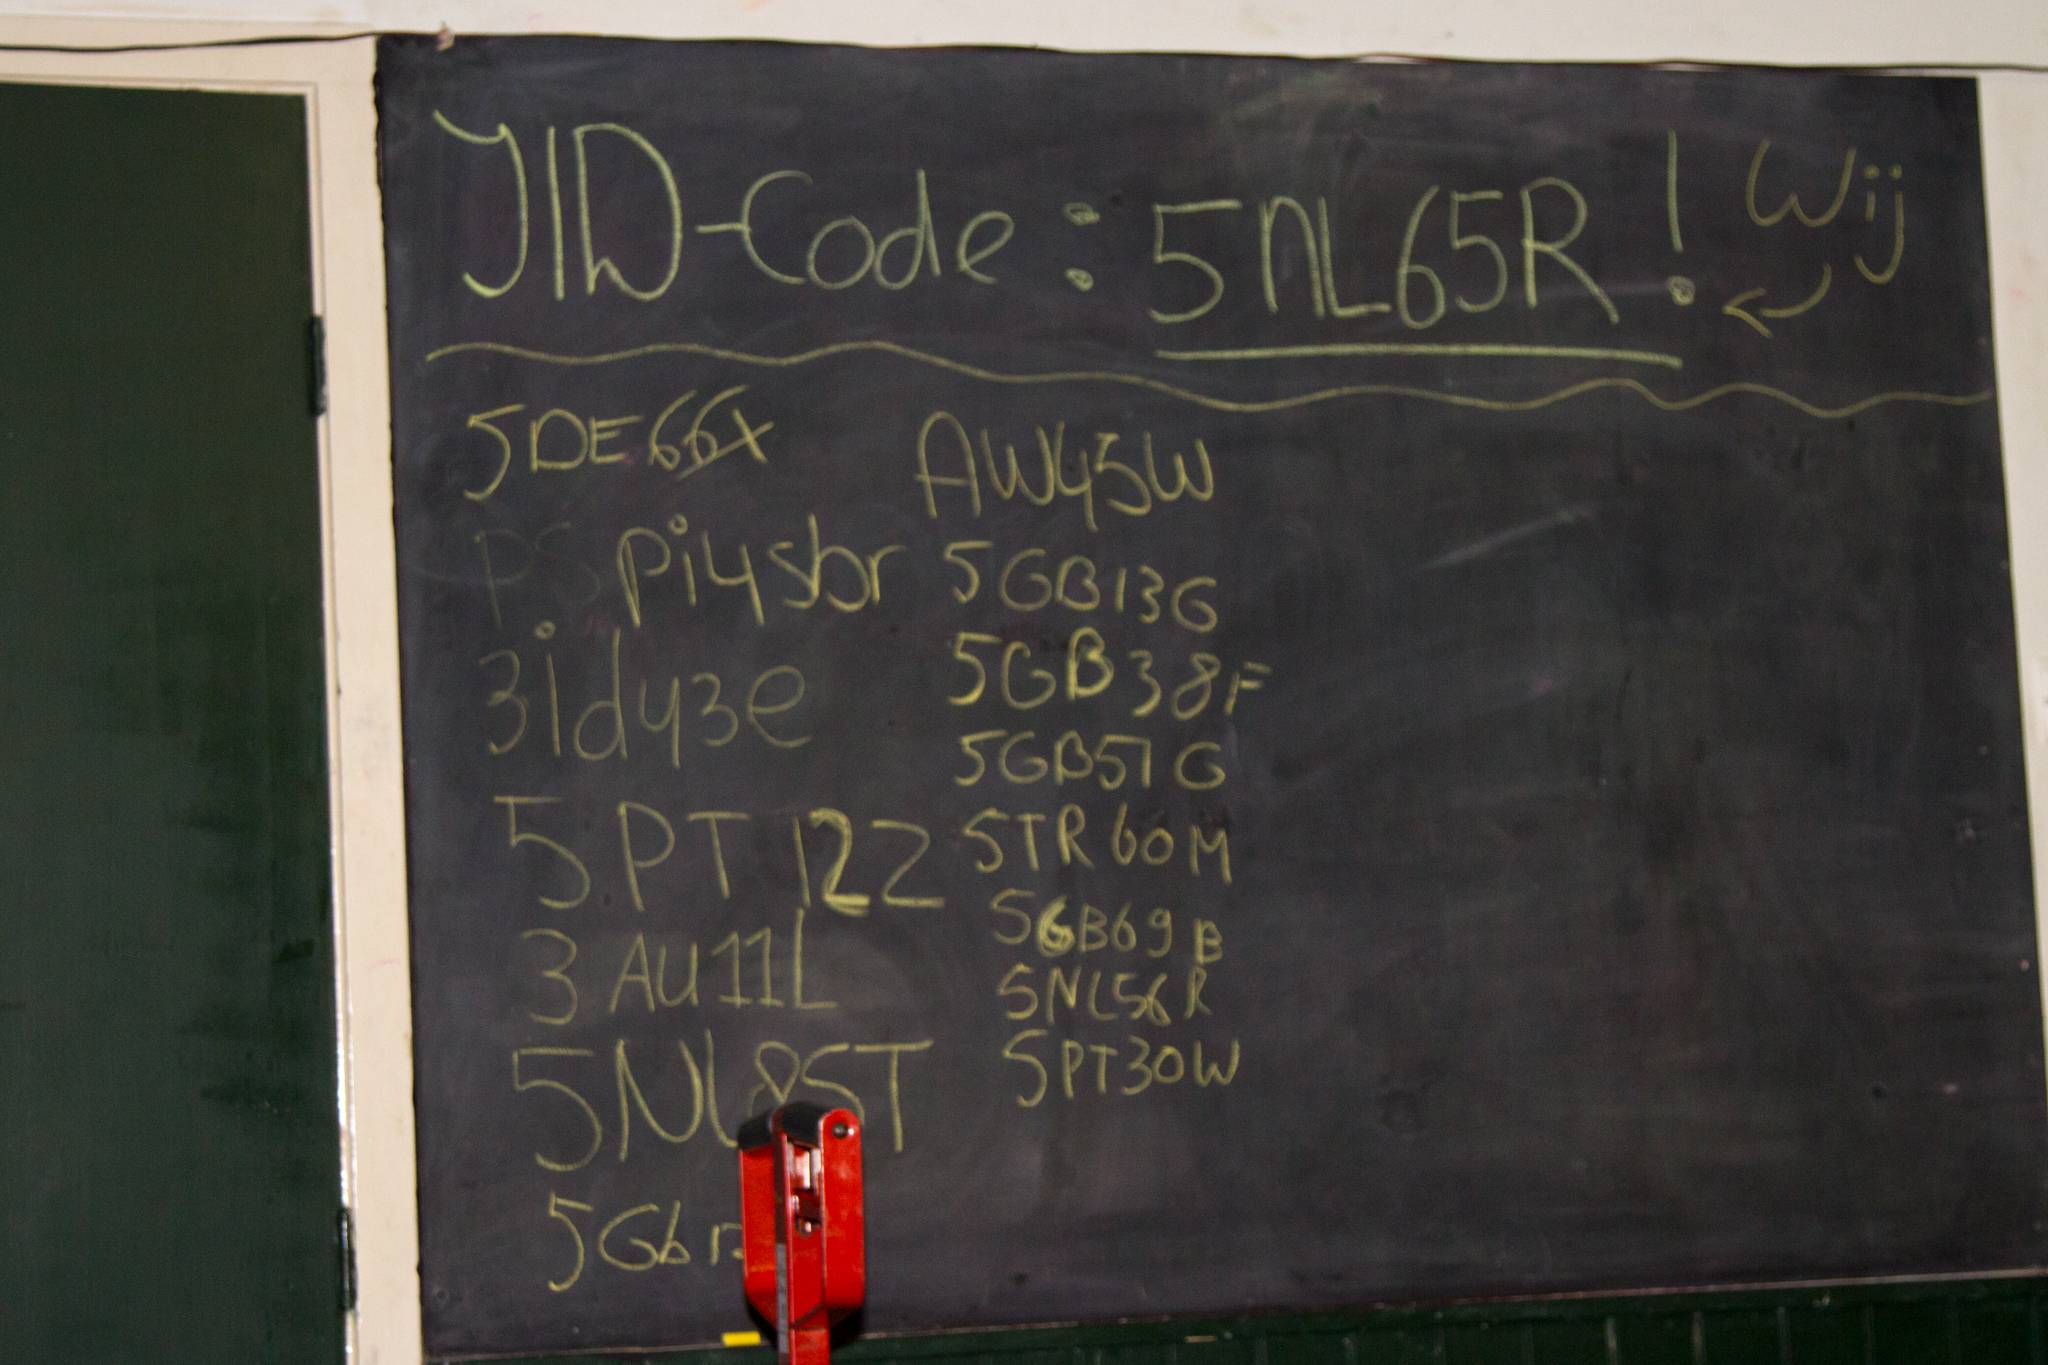 JID-Code: 5NL65R! Wij
5DE66X
PS Pi4sbr
3idy3e
5PT12Z
3AU11L
5NL85T
5Gb
AW45W
5GB13G
5GB38F
5GB57G
5TR60M
5GB69B
5NL56R
5PT30W